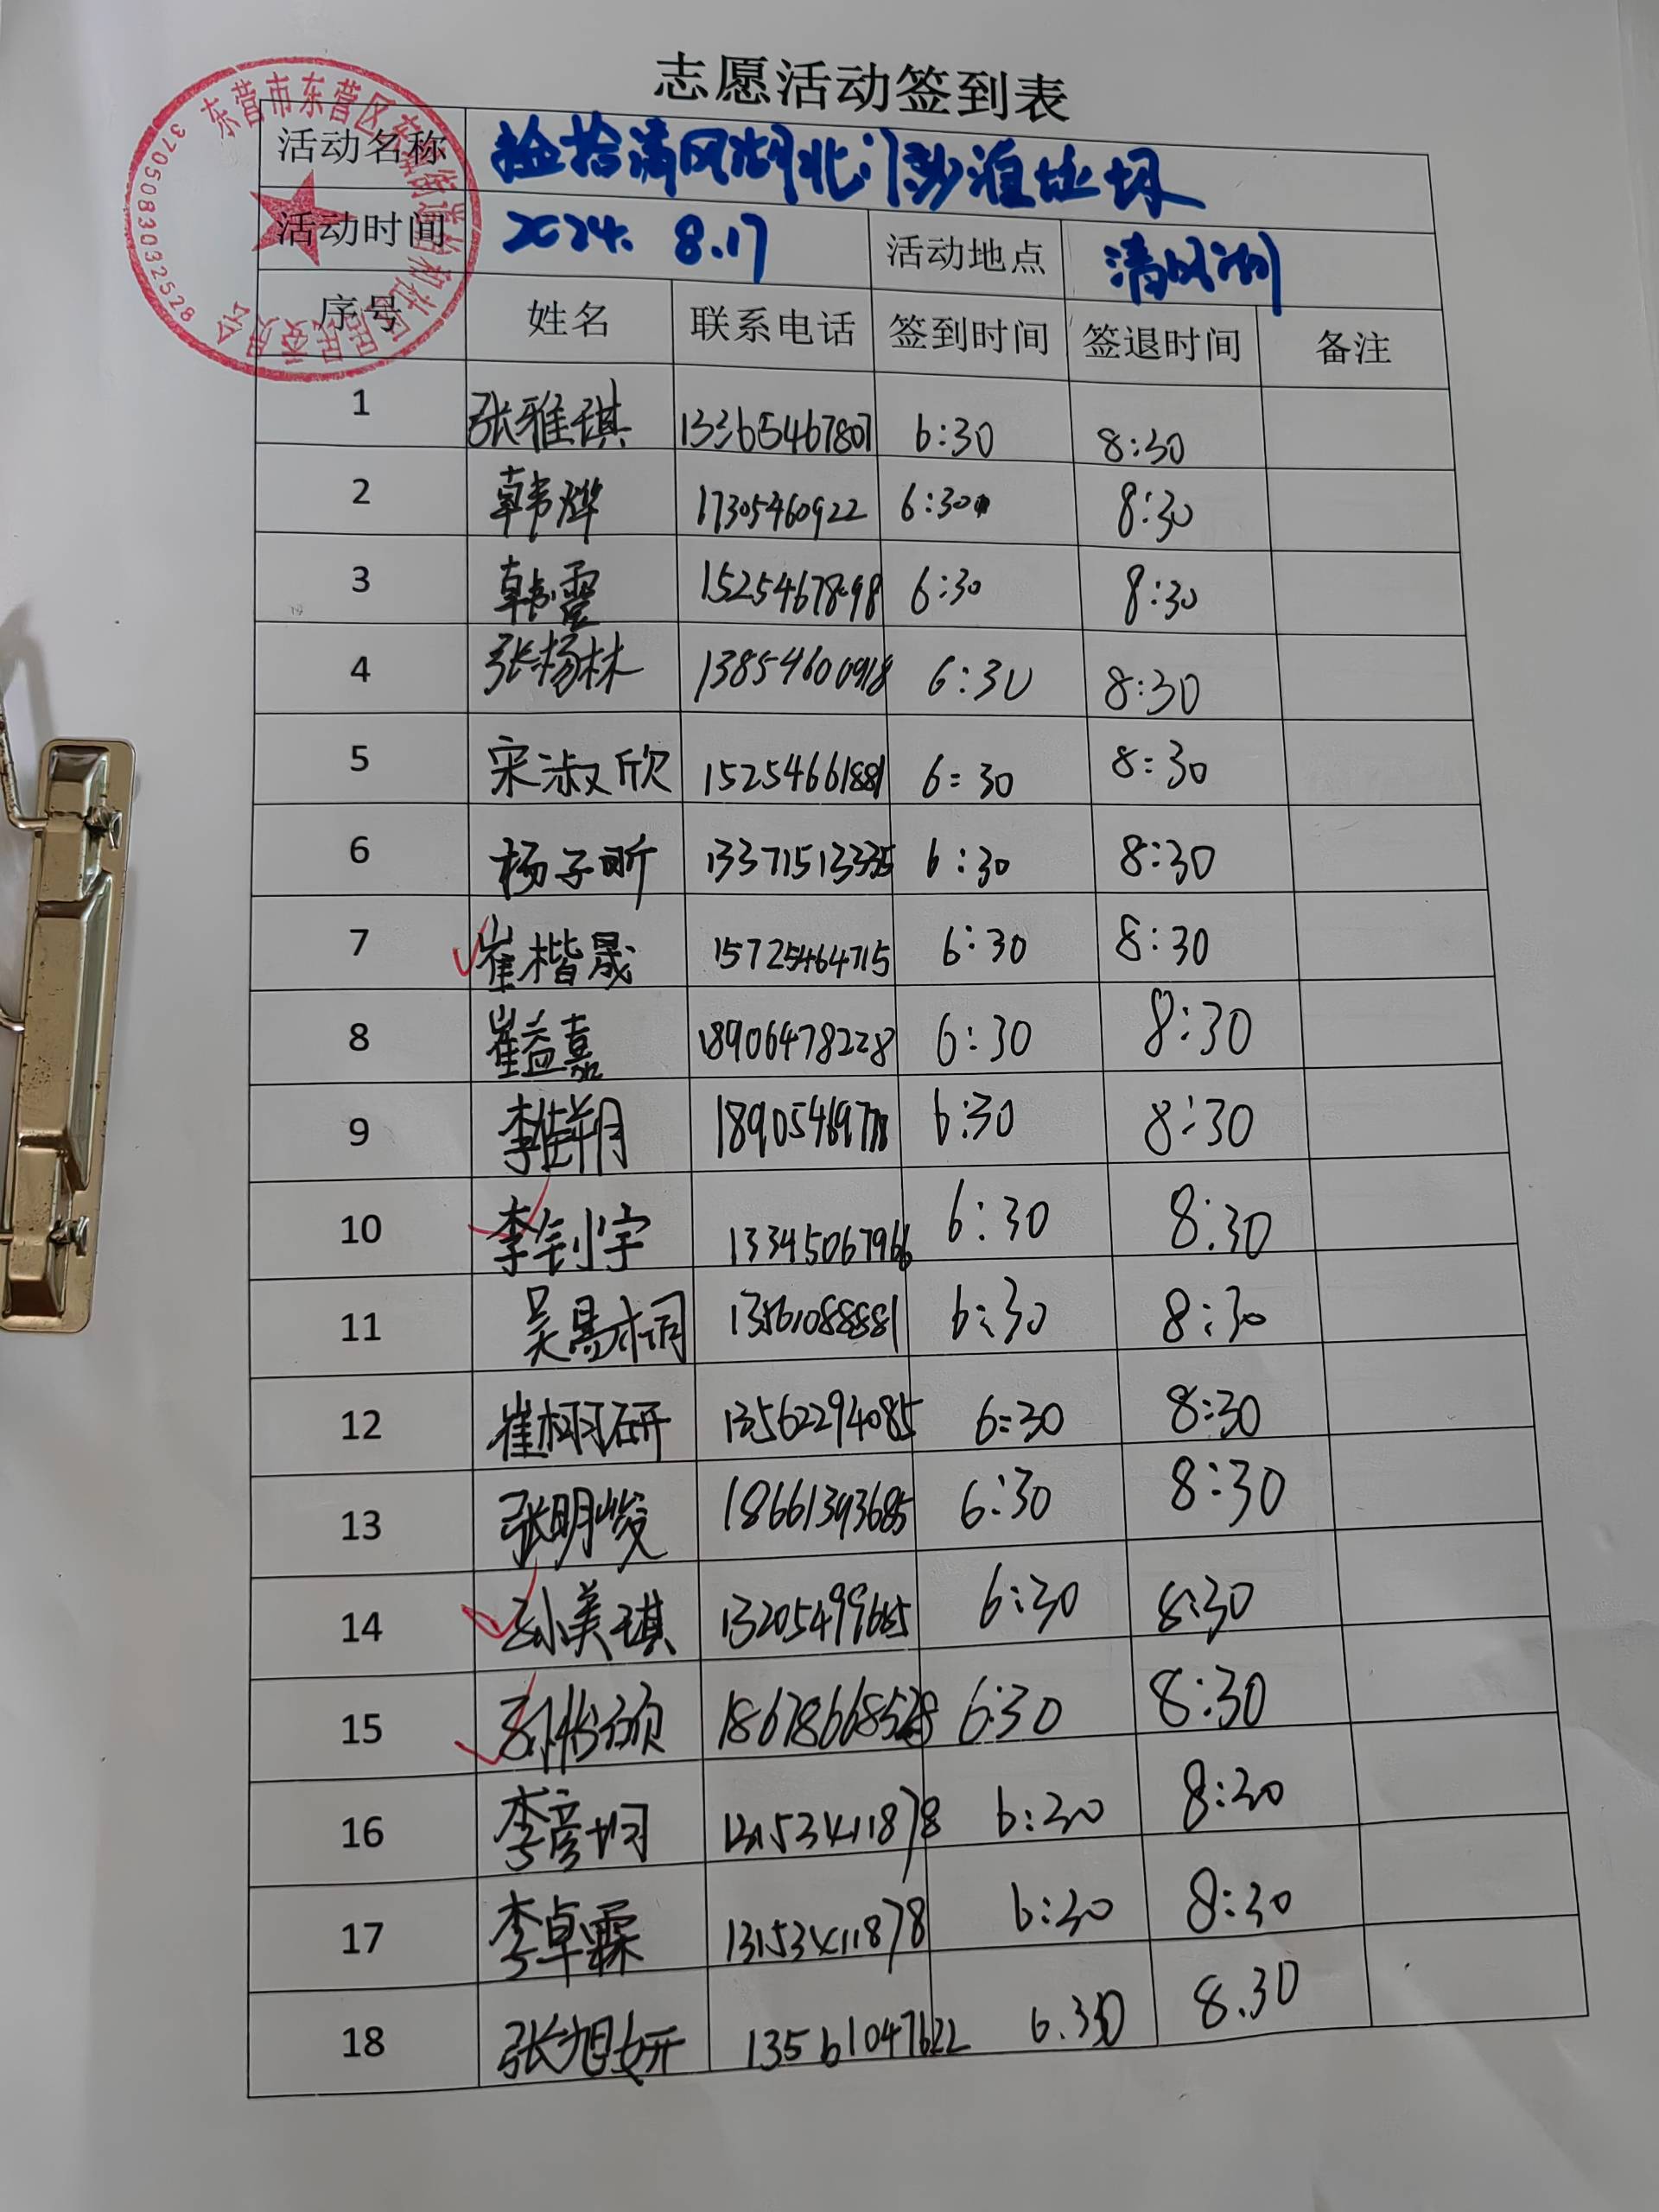 志愿活动签到表
东营市东营区
居民委员会
3705083032528
活动名称 捡拾清风湖北门沙滩垃圾
活动时间 2024. 8.17 活动地点 清风湖
序号 姓名 联系电话 签到时间 签退时间 备注
1 张雅琪 13365467807 6:30 8:30
2 韩烨 17305460922 6:30 8:30
3 韩霞 15254678498 6:30 8:30
4 张杨林 13854600918 6:30 8:30
5 宋淑欣 15254661881 6:30 8:30
6 杨子昕 13371513335 6:30 8:30
7 崔楷晟 15725464715 6:30 8:30
8 崔益嘉 18906478228 6:30 8:30
9 6:30 8:30
10 李钊宇 13345067966 6:30 8:30
11 13561088881 6:30 8:30
12 崔栩研 13562294085 6:30 8:30
13 张明峻 18661393685 6:30 8:30
14 孙美琪 13205499665 6:30 8:30
15 18678668528 6:30 8:30
16 李彦均 13153411878 6:30 8:30
17 李卓霖 13153411878 6:30 8:30
18 张旭妍 13561047622 6.30 8.30